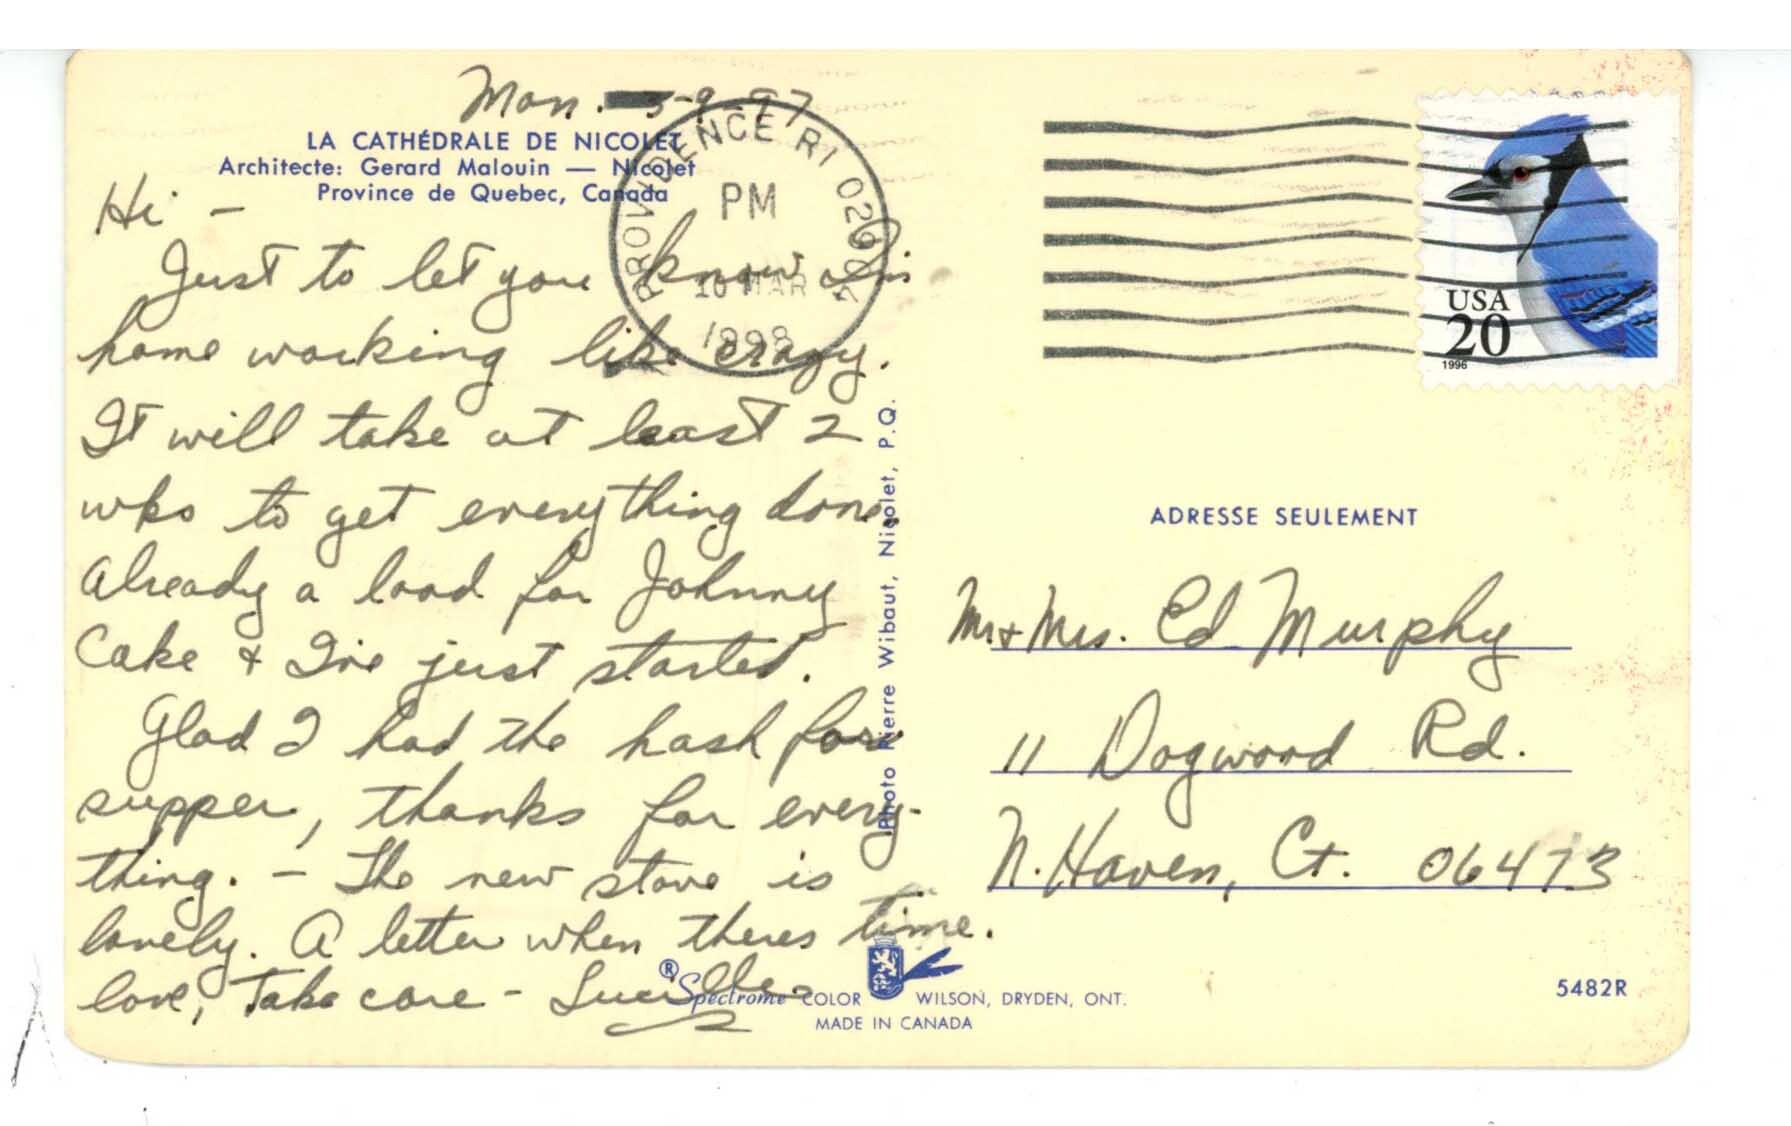 Mon. 3-9-97
LA CATHÉDRALE DE NICOLET
Architecte: Gerard Malouin — Nicolet
Province de Quebec, Canada
PROVIDENCE RI 029
PM
10 MAR
1998
USA
20
1996
Hi -
Just to let you know I'm
home working like crazy.
It will take at least 2
wks to get everything done.
Already a load for Johnny
Cake & I've just started.
Glad I had the hash for
supper, thanks for every-
thing. - The new stove is
lovely. A letter when theres time.
love, Take care - Lucille
Photo Pierre Wibaut, Nicolet, P.Q.
ADRESSE SEULEMENT
Mr & Mrs. Ed Murphy
11 Dogwood Rd.
N. Haven, Ct. 06473
®Spectrome COLOR WILSON, DRYDEN, ONT.
MADE IN CANADA
5482R